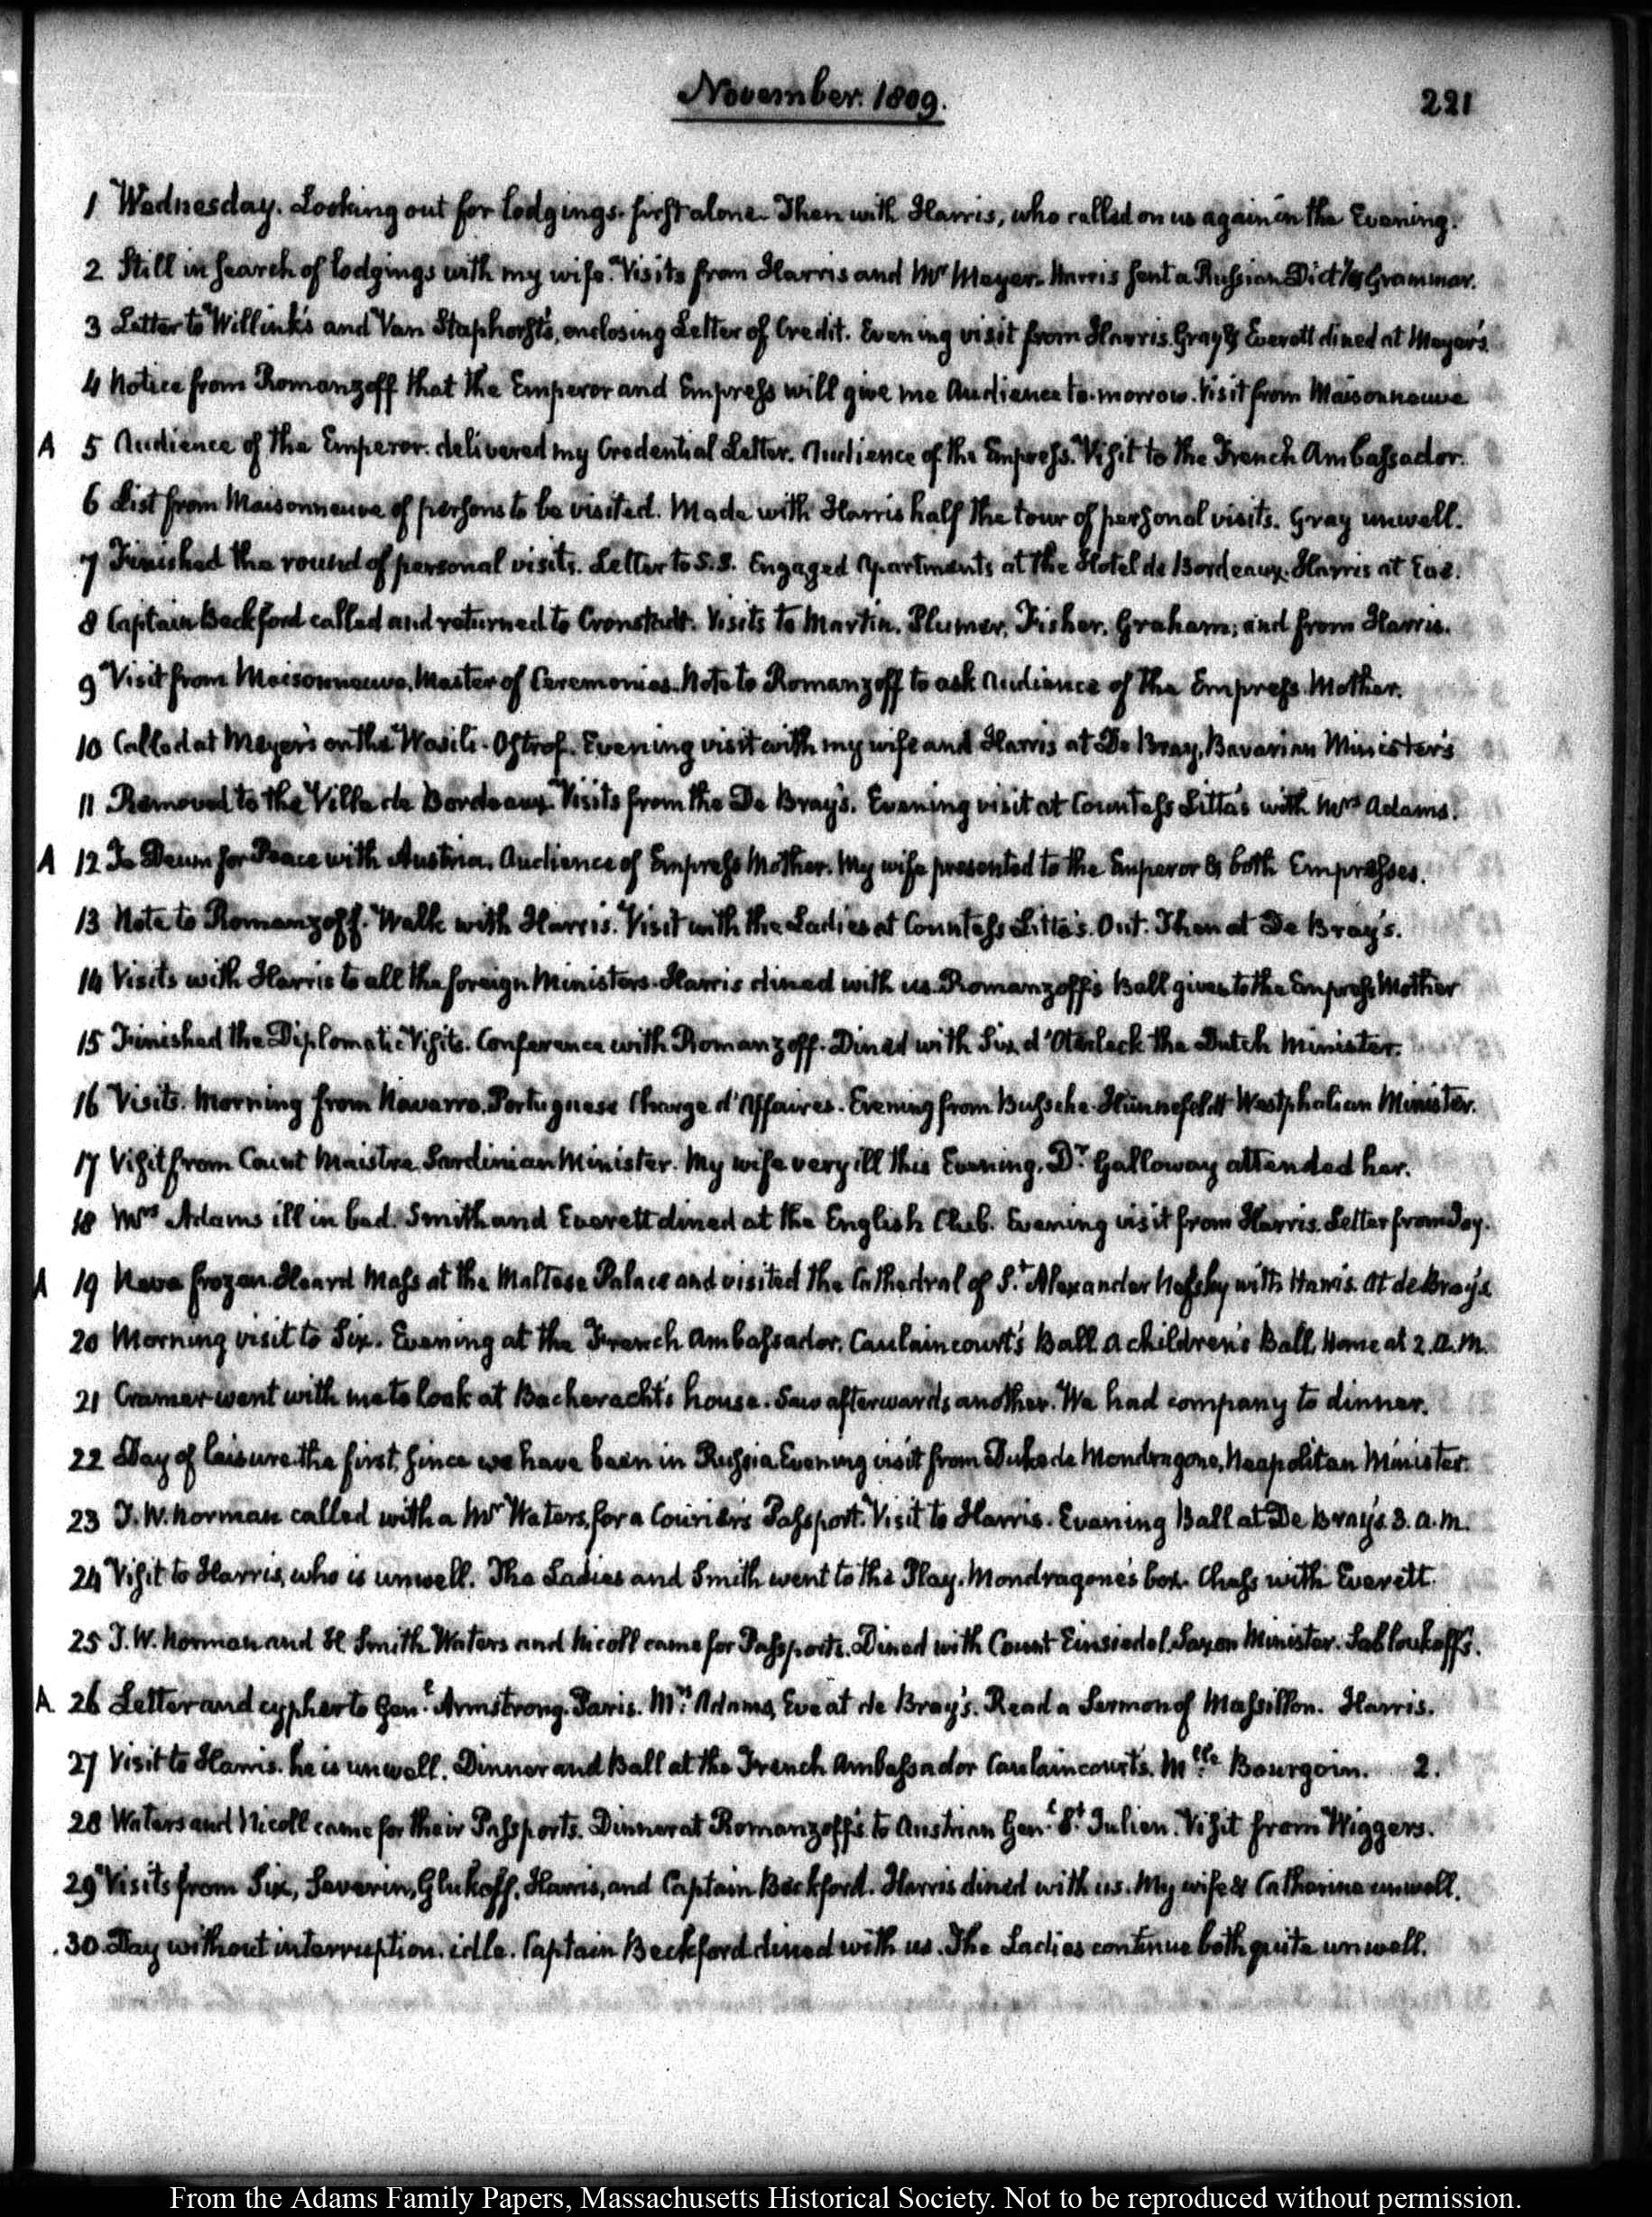 November. 1809.
221
1 Wednesday. Looking out for lodgings. first alone. Then with Harris, who called on us again in the Evening.
2 Still in search of lodgings with my wife. Visits from Harris and Mr Meyer. Harris sent a Russian Dicty & Grammar.
3 Letter to Willink's and Van Staphorst's, enclosing Letter of Credit. Evening visit from Harris. Gray & Everett dined at Meyer's.
4 Notice from Romanzoff that the Emperor and Empress will give me Audience to-morrow. Visit from Maisonneuve
A 5 Audience of the Emperor. delivered my Credential Letter. Audience of the Empress. Visit to the French Ambassador.
6 List from Maisonneuve of persons to be visited. Made with Harris half the tour of personal visits. Gray unwell.
7 Finished the round of personal visits. Letter to S.S. Engaged Apartments at the Hotel de Bordeaux. Harris at Eve.
8 Captain Beckford called and returned to Cronstadt. Visits to Martin, Plumer, Fisher, Graham; and from Harris.
9 Visit from Maisonneuve, Master of Ceremonies. Note to Romanzoff to ask Audience of the Empress Mother.
10 Called at Meyer's on the Wasili-Ostrof. Evening visit with my wife and Harris at De Bray, Bavarian Minister's
11 Removed to the Ville de Bordeaux. Visits from the De Bray's. Evening visit at Countess Litta's with Mrs Adams.
A 12 Te Deum for Peace with Austria. Audience of Empress Mother. My wife presented to the Emperor & both Empresses.
13 Note to Romanzoff. Walk with Harris. Visit with the Ladies at Countess Litta's. Out. Then at De Bray's.
14 Visits with Harris to all the foreign Ministers. Harris dined with us. Romanzoff's Ball given to the Empress Mother
15 Finished the Diplomatic Visits. Conference with Romanzoff. Dined with Six, d'Oterleek the Dutch Minister.
16 Visits. Morning from Navarro, Portuguese Charge d'Affaires. Evening from Bussche-Hünnefeldt Westphalian Minister.
17 Visit from Count Maistre Sardinian Minister. My wife very ill this Evening. Dr Galloway attended her.
18 Mrs Adams ill in bed. Smith and Everett dined at the English Club. Evening visit from Harris. Letter from Joy.
A 19 Neva frozen. Heard Mass at the Maltese Palace and visited the Cathedral of St Alexander Nefsky with Harris. At de Bray's
20 Morning visit to Six. Evening at the French Ambassador, Caulaincourt's Ball. a children's Ball, Home at 2. a.m.
21 Cramer went with me to look at Bacheracht's house. Saw afterwards another. We had company to dinner.
22 Day of leisure the first, since we have been in Russia. Evening visit from Duke de Mondragone, Neapolitan Minister.
23 J. W. Norman called with a Mr Waters, for a Courier's Passport. Visit to Harris. Evening Ball at De Bray's. 3. a.m.
24 Visit to Harris, who is unwell. The Ladies and Smith went to the Play. Mondragone's box. Chess with Everett.
25 J. W. Norman and H. Smith. Waters and Nicoll came for Passports. Dined with Count Einsiedel, Saxon Minister. Sabloukoff's.
A. 26 Letter and cypher to Genl Armstrong. Paris. Mrs Adams, Eve at de Bray's. Read a Sermon of Massillon. Harris.
27 Visit to Harris. he is unwell. Dinner and Ball at the French Ambassador Caulaincourt's. Mlle Bourgoin. 2.
28 Waters and Nicoll came for their Passports. Dinner at Romanzoff's to Austrian Genl St Julien. Visit from Wiggers.
29 Visits from Six, Severin, Glukoff, Harris, and Captain Beckford. Harris dined with us. My wife & Catharine unwell.
30 Day without interruption. idle. Captain Beckford dined with us. The Ladies continue both quite unwell.
From the Adams Family Papers, Massachusetts Historical Society. Not to be reproduced without permission.